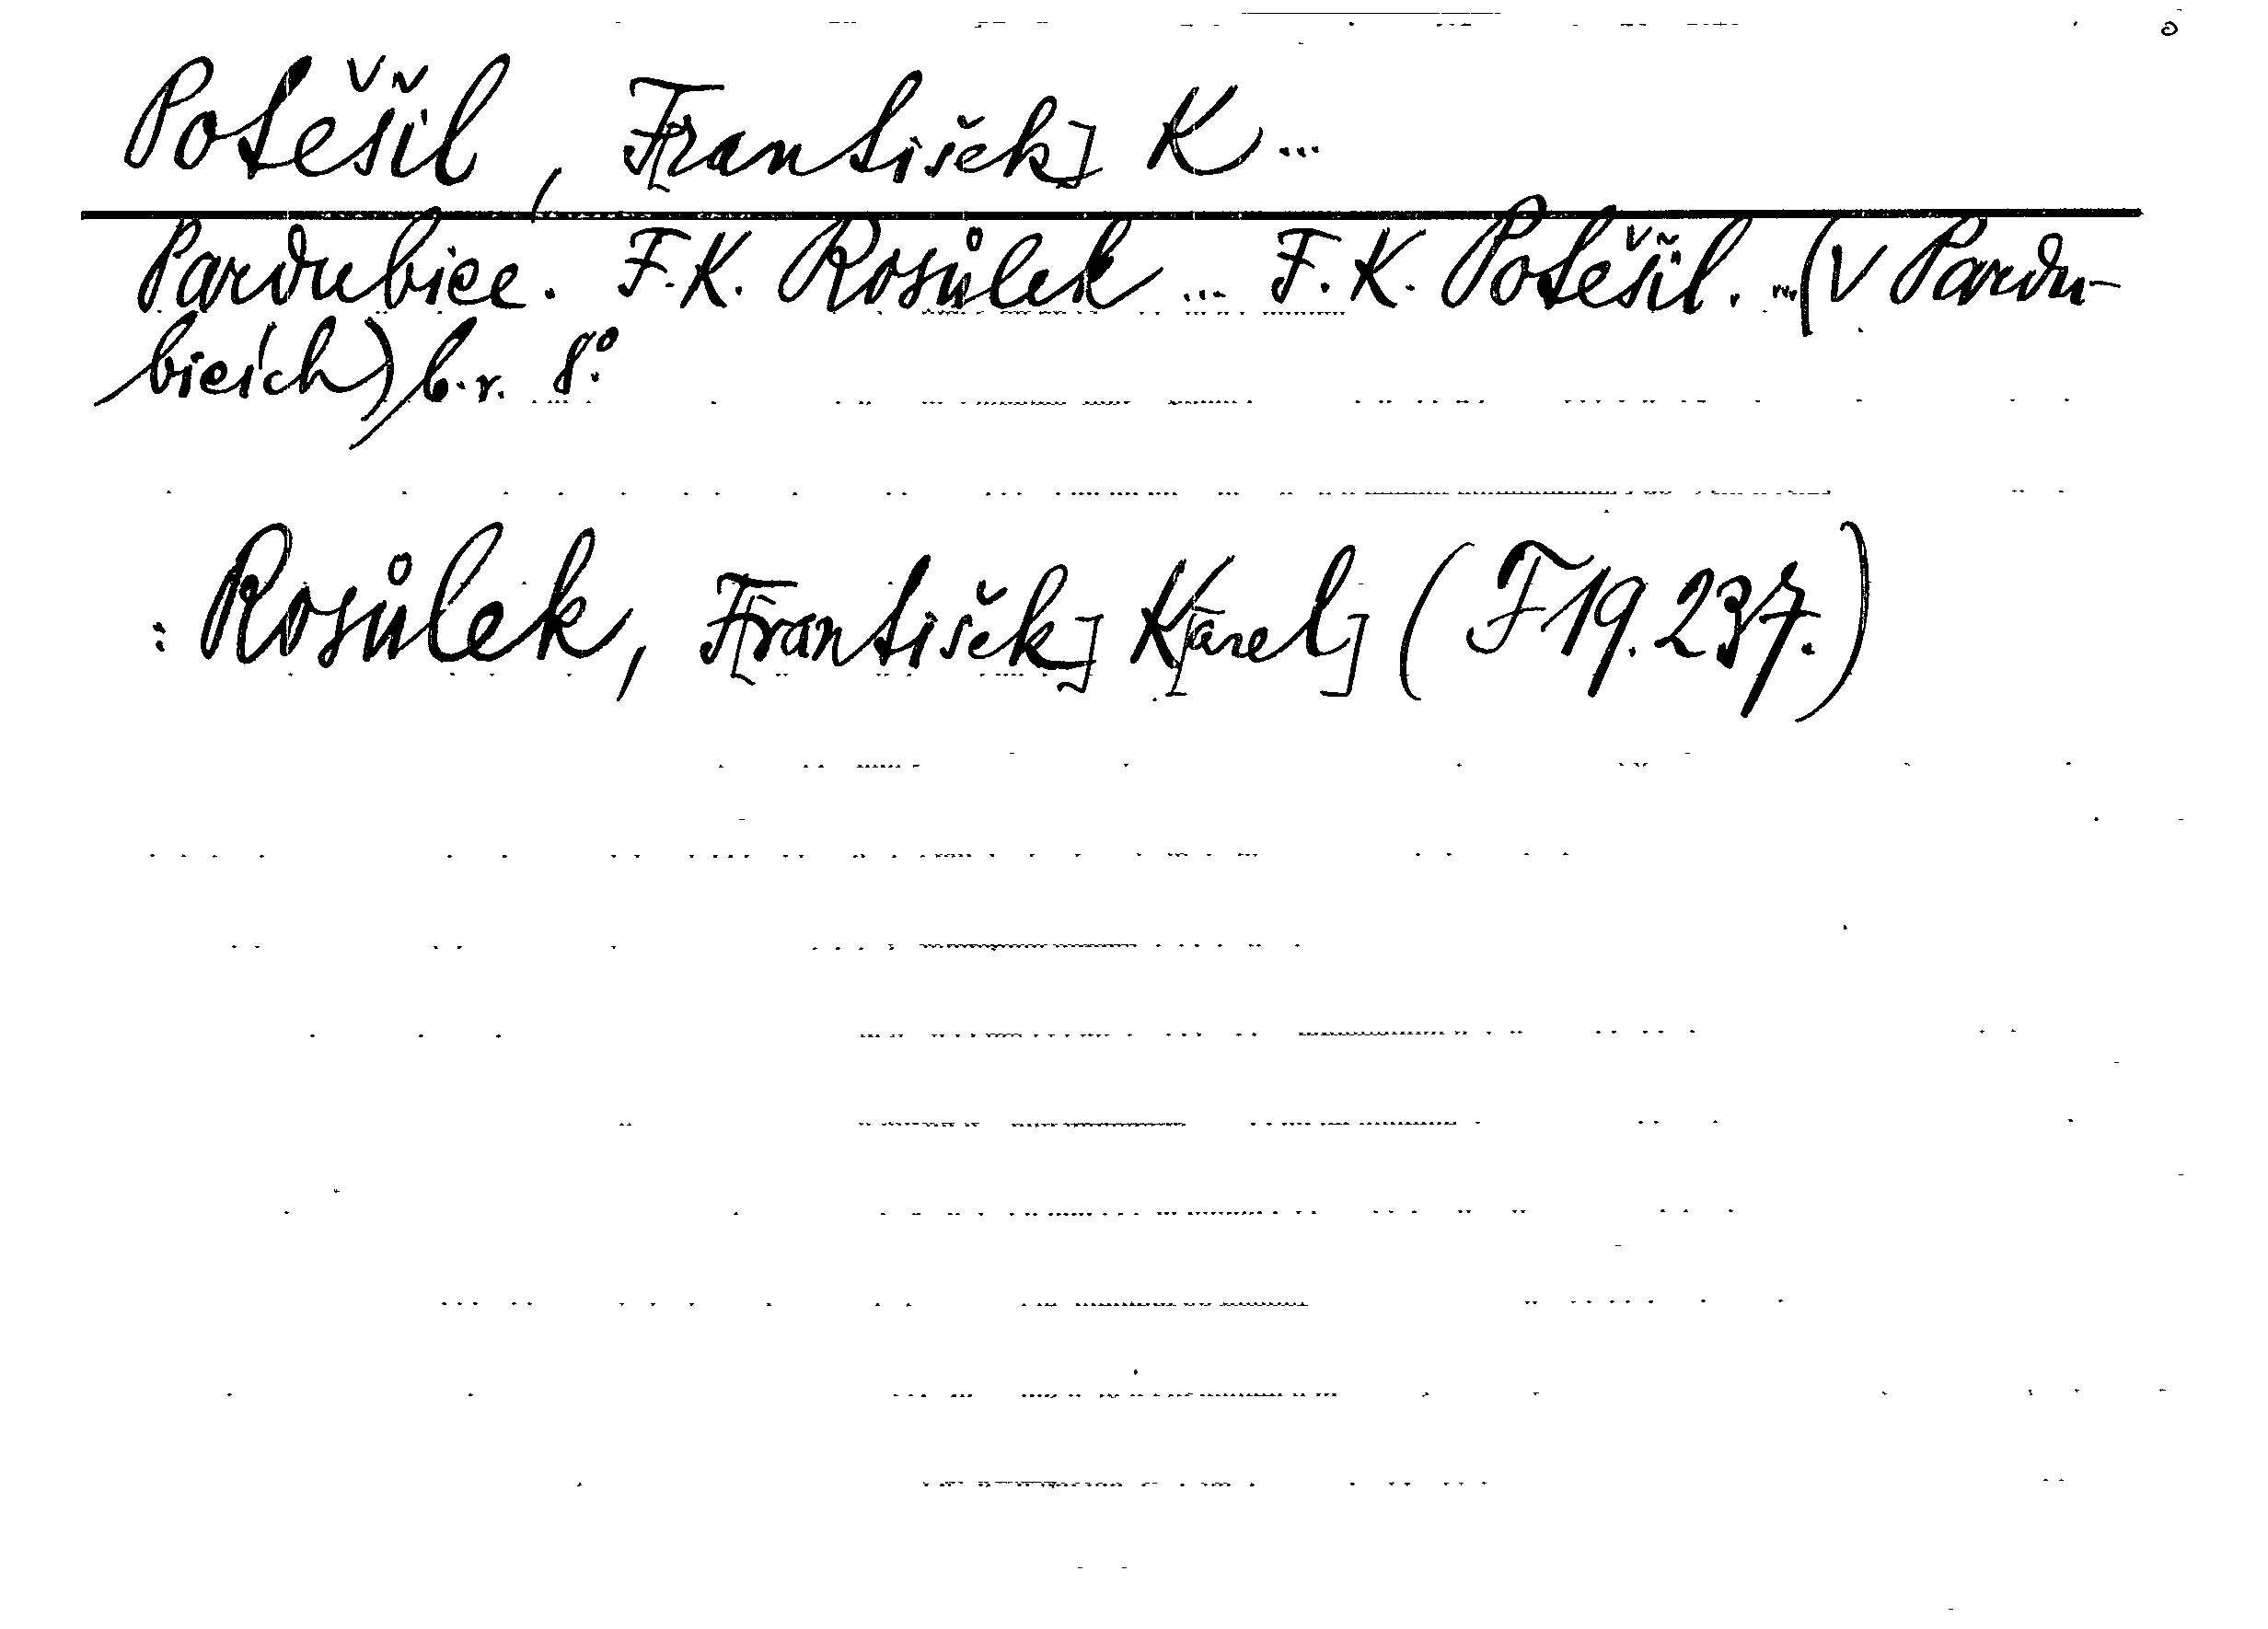 Potěšil, F[rantišek] K...
Pardubice. F. K. Rosůlek ... F. K. Potěšil. ... (V Pardu-
bicích) b. r. 8°.
: Rosůlek, F[rantišek] K[arel] (F 19.237.)